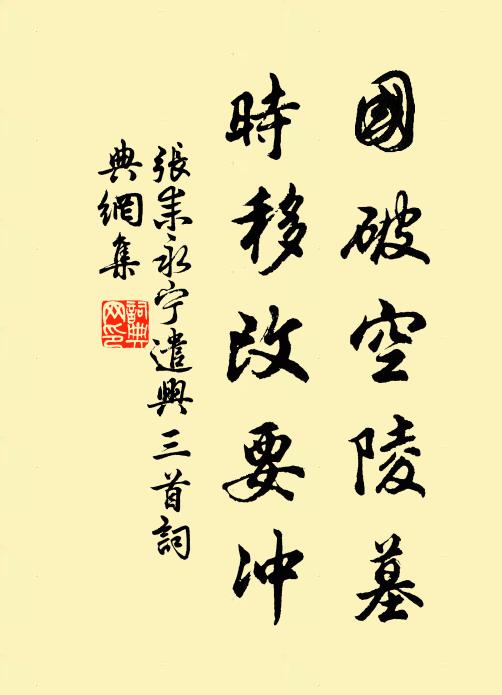 國破空陵墓
時移改要冲
張耒永宁遣興三首詞
典網集
詞典
网印